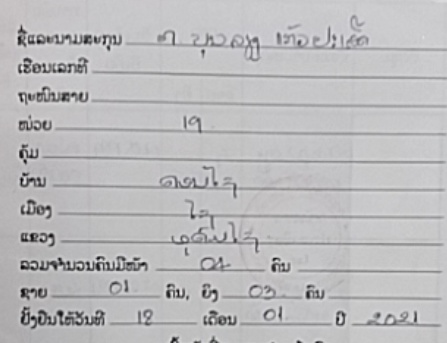 ຊື່ແລະນາມສະກຸນ
ເຮືອນເລກທີ
ຖະໜົນສາຍ
ໜ່ວຍ 19
ຄຸ້ມ
ບ້ານ ດອນໄຊ
ເມືອງ ໄຊ
ແຂວງ ອຸດົມໄຊ
ລວມຈຳນວນຄົນມີໜ້າ 04 ຄົນ
ຊາຍ 01 ຄົນ, ຍິງ 03 ຄົນ
ຢັ້ງຢືນໃຫ້ວັນທີ 12 ເດືອນ 01 ປີ 2021